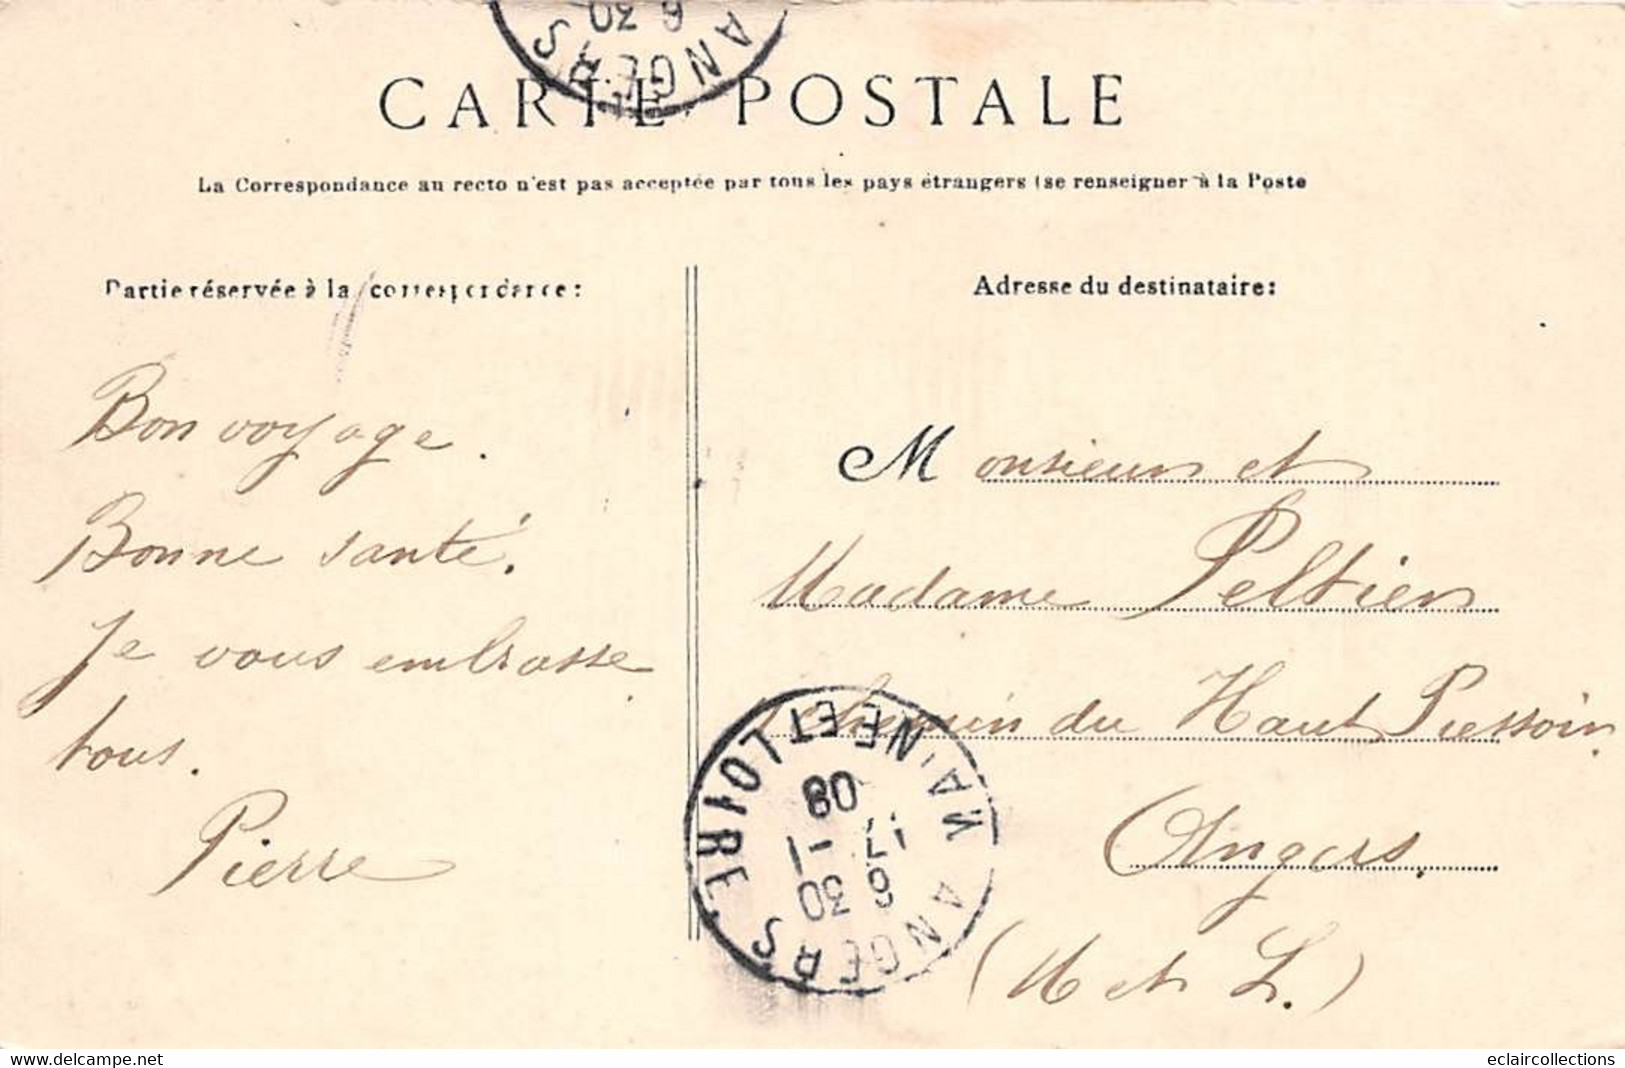 ANGERS
6 30
CARTE POSTALE
La Correspondance au recto n'est pas acceptée par tous les pays étrangers (se renseigner à la Poste
Partie réservée à la correspondance:
Adresse du destinataire:
Bon voyage.
Bonne santé.
Je vous embrasse
tous.
Pierre
Monsieur et
Madame Peltier
chemin du Haut Pressoir
Angers.
(M et L.)
ANGERS MAINE ET LOIRE
6 30
17 -1
08
www.delcampe.net
eclaircollections